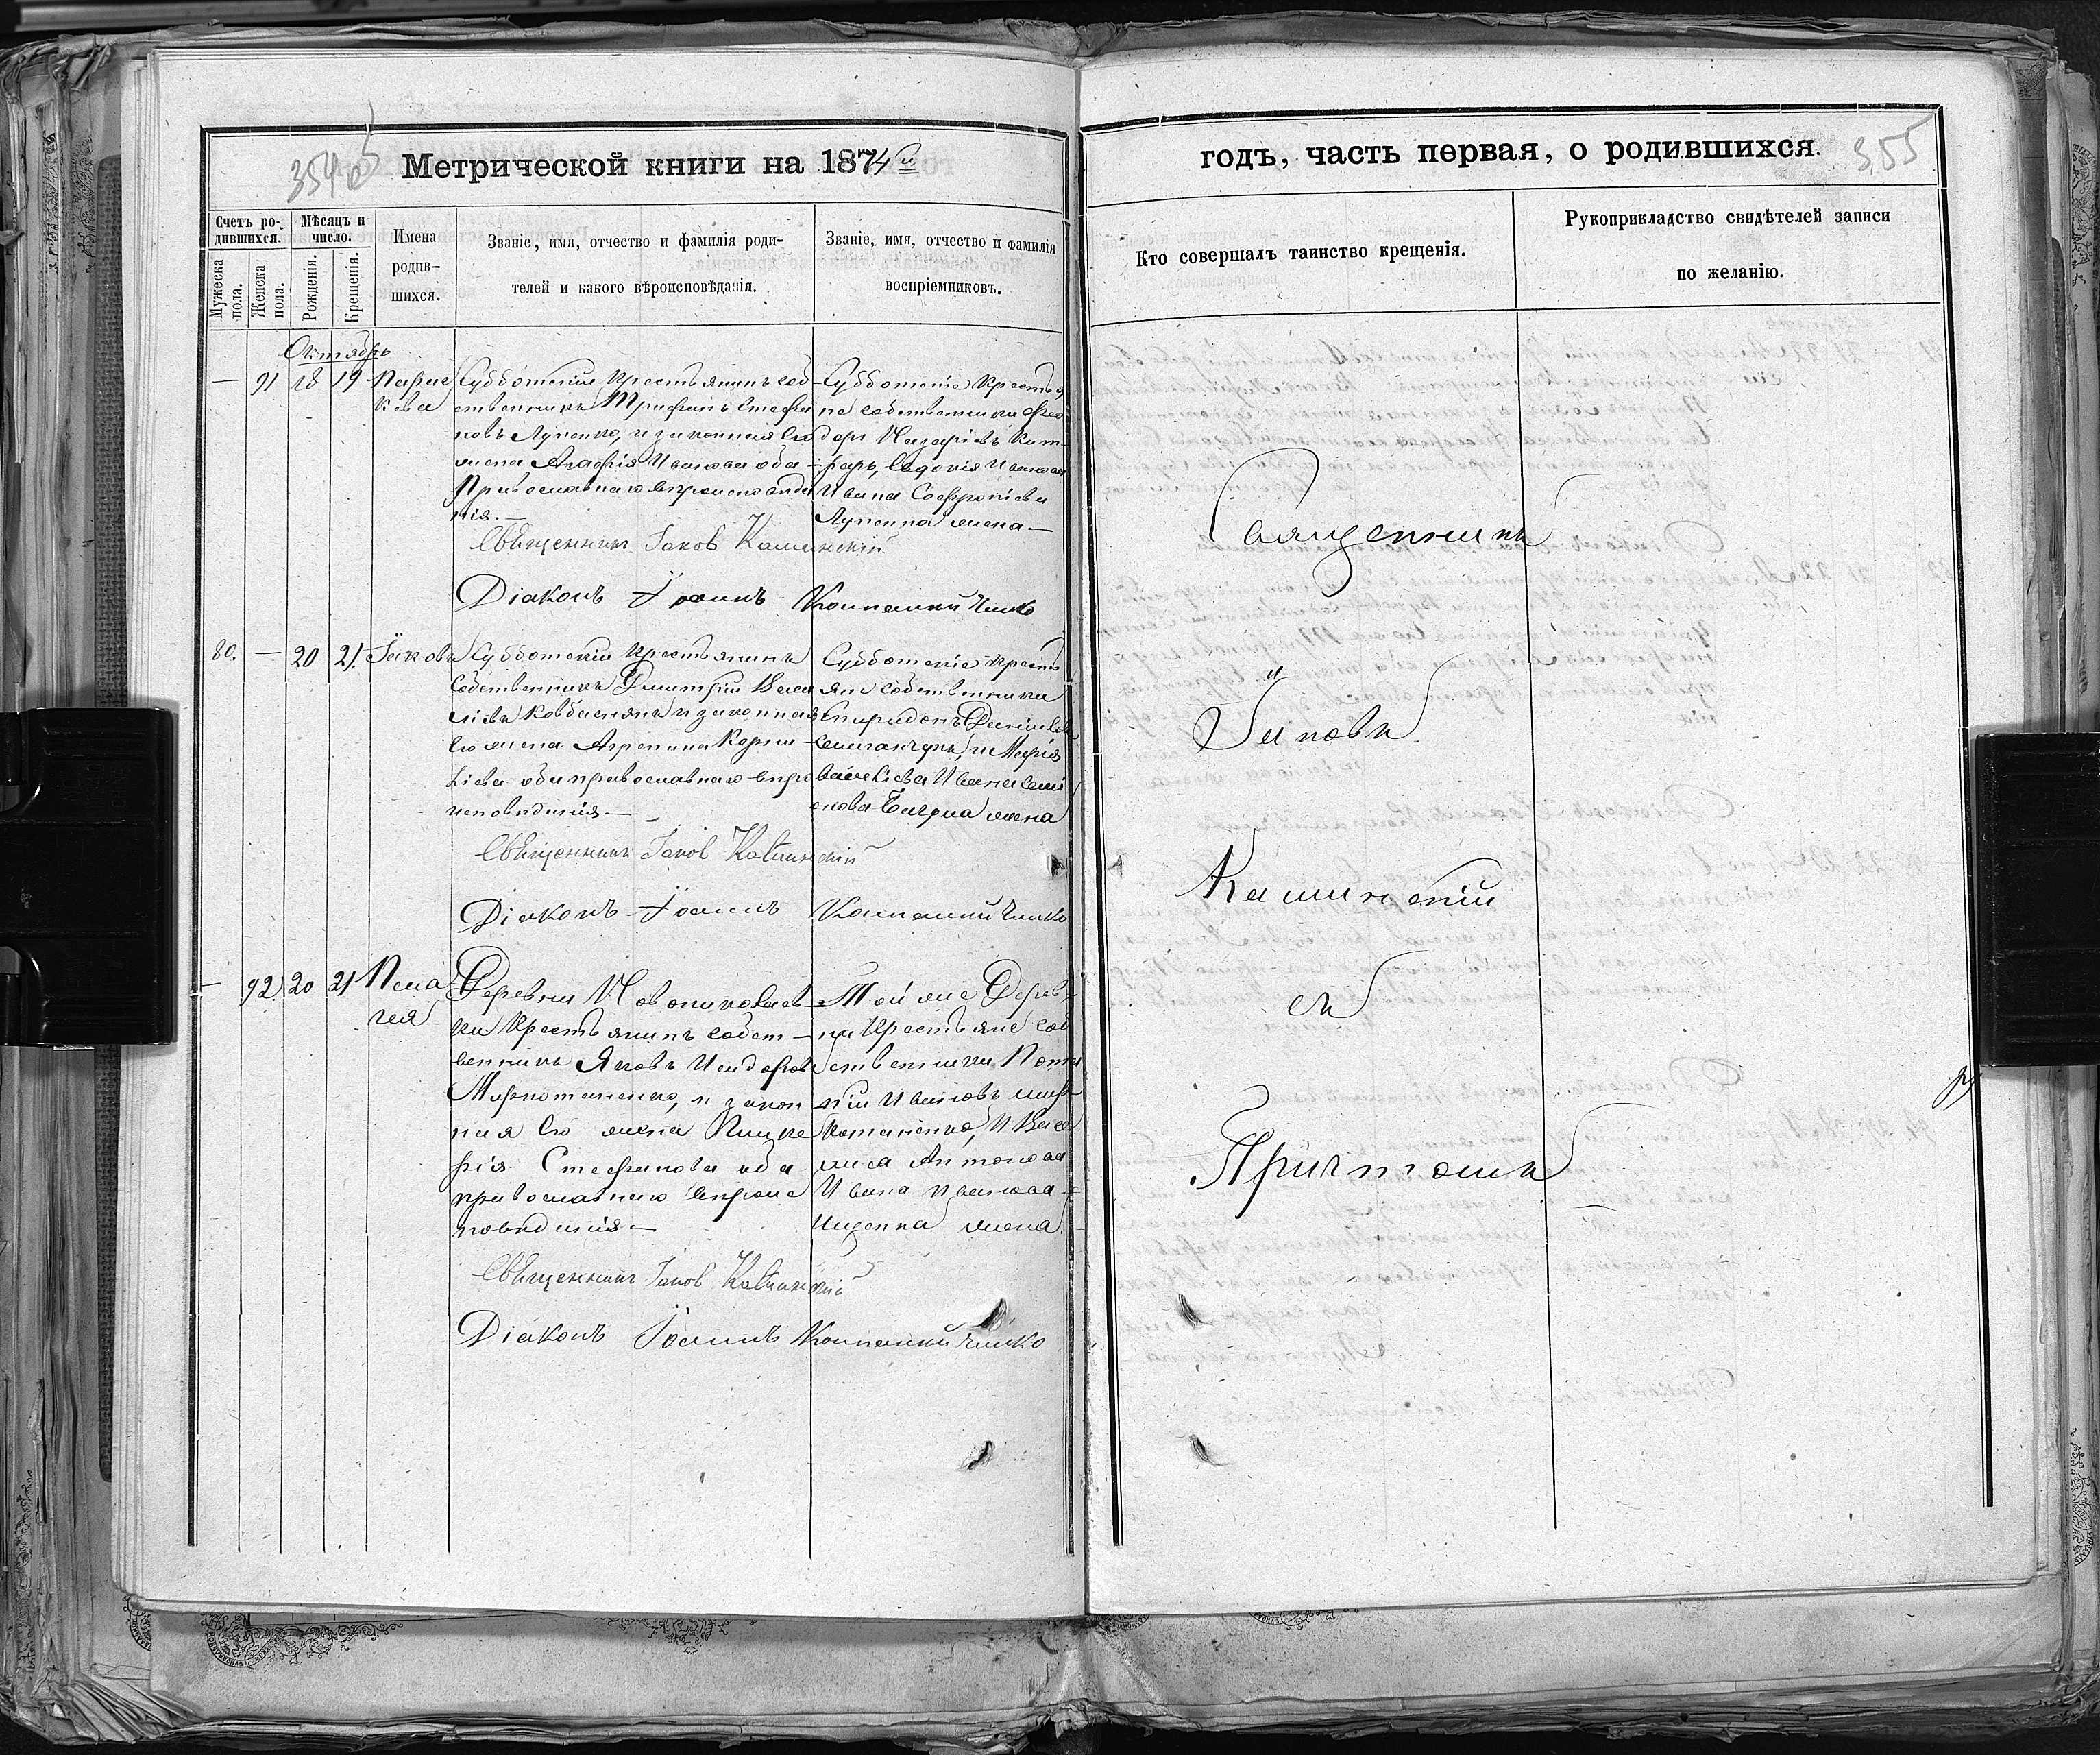 354 об
Метрической книги на 1874й
Счетъ ро-
дившихся.
Мѣсяцъ и
число.
Мужеска
пола.
Женска
пола.
Рожденія.
Крещенія.
Имена
родив-
шихся.
Званіе, имя, отчество и фамилія роди-
телей и какого вѣроисповѣданія.
Званіе, имя, отчество и фамилія
воспріемниковъ.
Октябрь
— 91 18 19 Парас
кева
Субботскій крестьянинъ соб-
ственникъ Трифонъ Стефа
новъ Лупенко, и законная его
жена Агафія Иванова оба
Православнаго вѣроисповѣда
нія.—
Субботскіе крестья
не собственники Фео
доръ Назаріевъ
Евдокія Иванова
Ивана Софроніева
Лупенка жена—
Священникъ Іаковъ Каминскій
Діаконъ Іоаннъ Компанийченко
80. — 20 21. Іаковъ
Субботскій крестьянинъ
собственникъ Димитрій Васи
ліевъ Ковбасянъ и законная
его жена Агрепина Корни-
ліева оба православнаго вѣро
исповѣданія—
Субботскіе кресть
яне собственники
Спиридонъ Даніиловъ
и Марія
Ивана Семі
онова жена
Священникъ Іаковъ Каминскій
Діаконъ Іоаннъ Компанийченко
— 92. 20 21 Пела
гея
Деревни Новониколаев-
ки крестьянинъ собст-
венникъ Яковъ Исидоровъ
и закон
ная его жена Гликке
рія Стефанова оба
православнаго вѣроис
повѣданія—
Той же Дерев-
ни крестьяне соб
ственники
Ивановъ
и Васи
лиса Антонова
Ивана Иванова
Ищенка жена.
Священникъ Іаковъ Каминскій
Діаконъ Іоаннъ Компанийченко
годъ, часть первая, о родившихся.
355
Кто совершалъ таинство крещенія.
Рукоприкладство свидѣтелей записи
по желанію.
Священникъ
Іаковъ
Каминскій
съ
Причтомъ